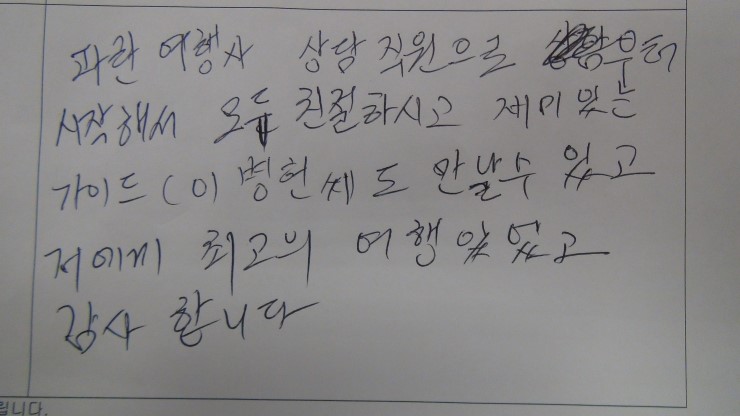 파란 여행사 상담 직원으로 부터
시작해서 모두 친절하시고 재미있는
가이드 (이병헌씨도 만날수 있고
저에게 최고의 여행있었고
감사 합니다
립니다.